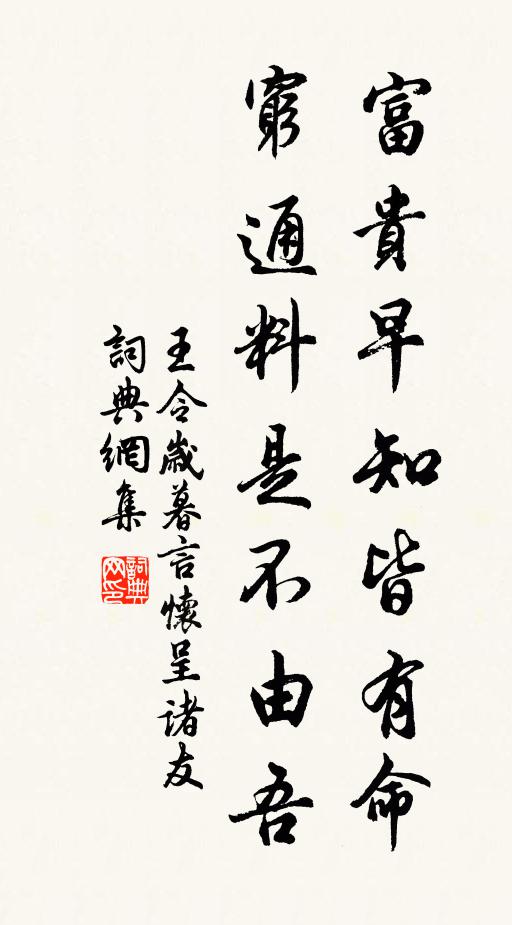 富貴早知皆有命
窮通料是不由吾
王令歲暮言懷呈諸友
詞典網集
詞典网印